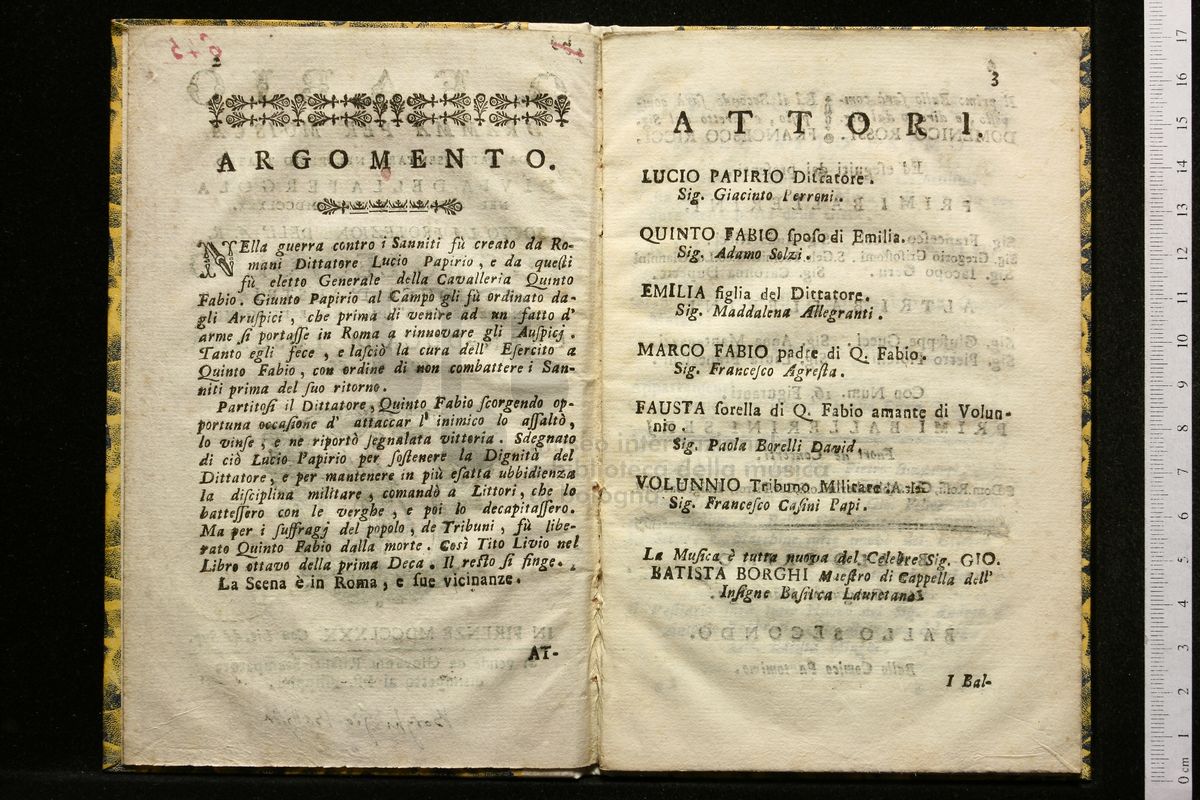 2
ARGOMENTO.
NElla guerra contro i Sanniti fù creato da Ro-
mani Dittatore Lucio Papirio, e da queſti
fù eletto Generale della Cavalleria Quinto
Fabio. Giunto Papirio al Campo gli fù ordinato da-
gli Aruſpici, che prima di venire ad un fatto d'
arme ſi portaſſe in Roma a rinnovare gli Auſpicj.
Tanto egli fece, e laſciò la cura dell' Eſercito a
Quinto Fabio, con ordine di non combattere i San-
niti prima del ſuo ritorno.
Partitoſi il Dittatore, Quinto Fabio ſcorgendo op-
portuna occaſione d' attaccar l' inimico lo aſſaltò,
lo vinſe, e ne riportò ſegnalata vittoria. Sdegnato
di ciò Lucio Papirio per ſoſtenere la Dignità del
Dittatore, e per mantenere in più eſatta ubbidienza
la diſciplina militare, comandò a Littori, che lo
batteſſero con le verghe, e poi lo decapitaſſero.
Ma per i ſuffragj del popolo, de Tribuni, fù libe-
rato Quinto Fabio dalla morte. Così Tito Livio nel
Libro ottavo della prima Deca. Il reſto ſi finge.
La Scena è in Roma, e ſue vicinanze.
AT-
3
ATTORI.
LUCIO PAPIRIO Dittatore.
Sig. Giacinto Perroni.
QUINTO FABIO ſpoſo di Emilia.
Sig. Adamo Solzi.
EMILIA figlia del Dittatore.
Sig. Maddalena Allegranti.
MARCO FABIO padre di Q. Fabio.
Sig. Franceſco Agreſta.
FAUSTA ſorella di Q. Fabio amante di Volun-
nio.
Sig. Paola Borelli David.
VOLUNNIO Tribuno Militare.
Sig. Franceſco Caſini Papi.
La Muſica è tutta nuova del Celebre Sig. GIO.
BATISTA BORGHI Maeſtro di Cappella dell'
Inſigne Baſilica Lauretana.
I Bal-